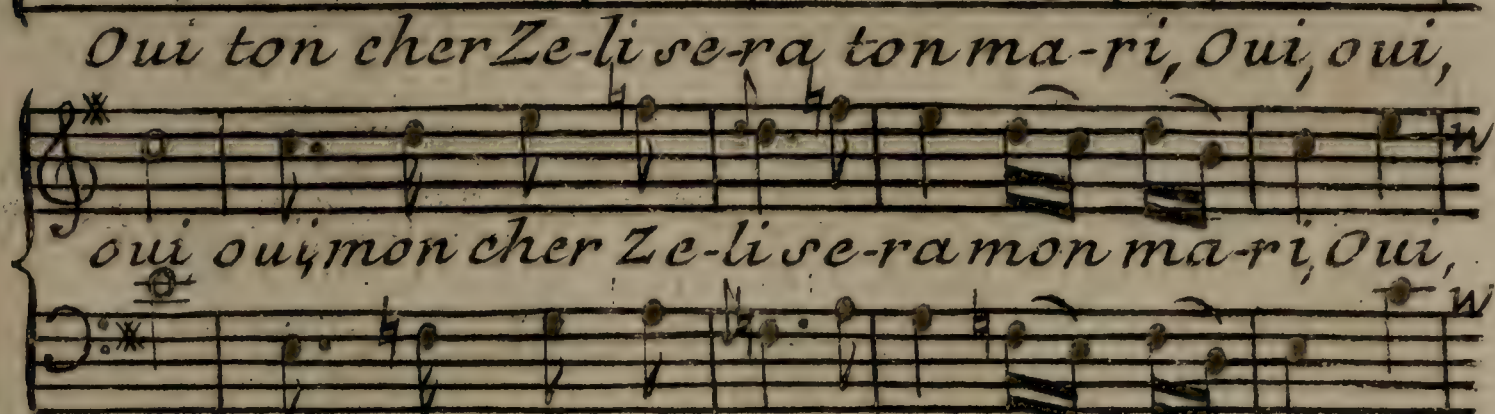 Oui ton cher Ze-li se-ra ton ma-ri, Oui, oui,
oui oui, mon cher Ze-li se-ra mon ma-ri, Oui,